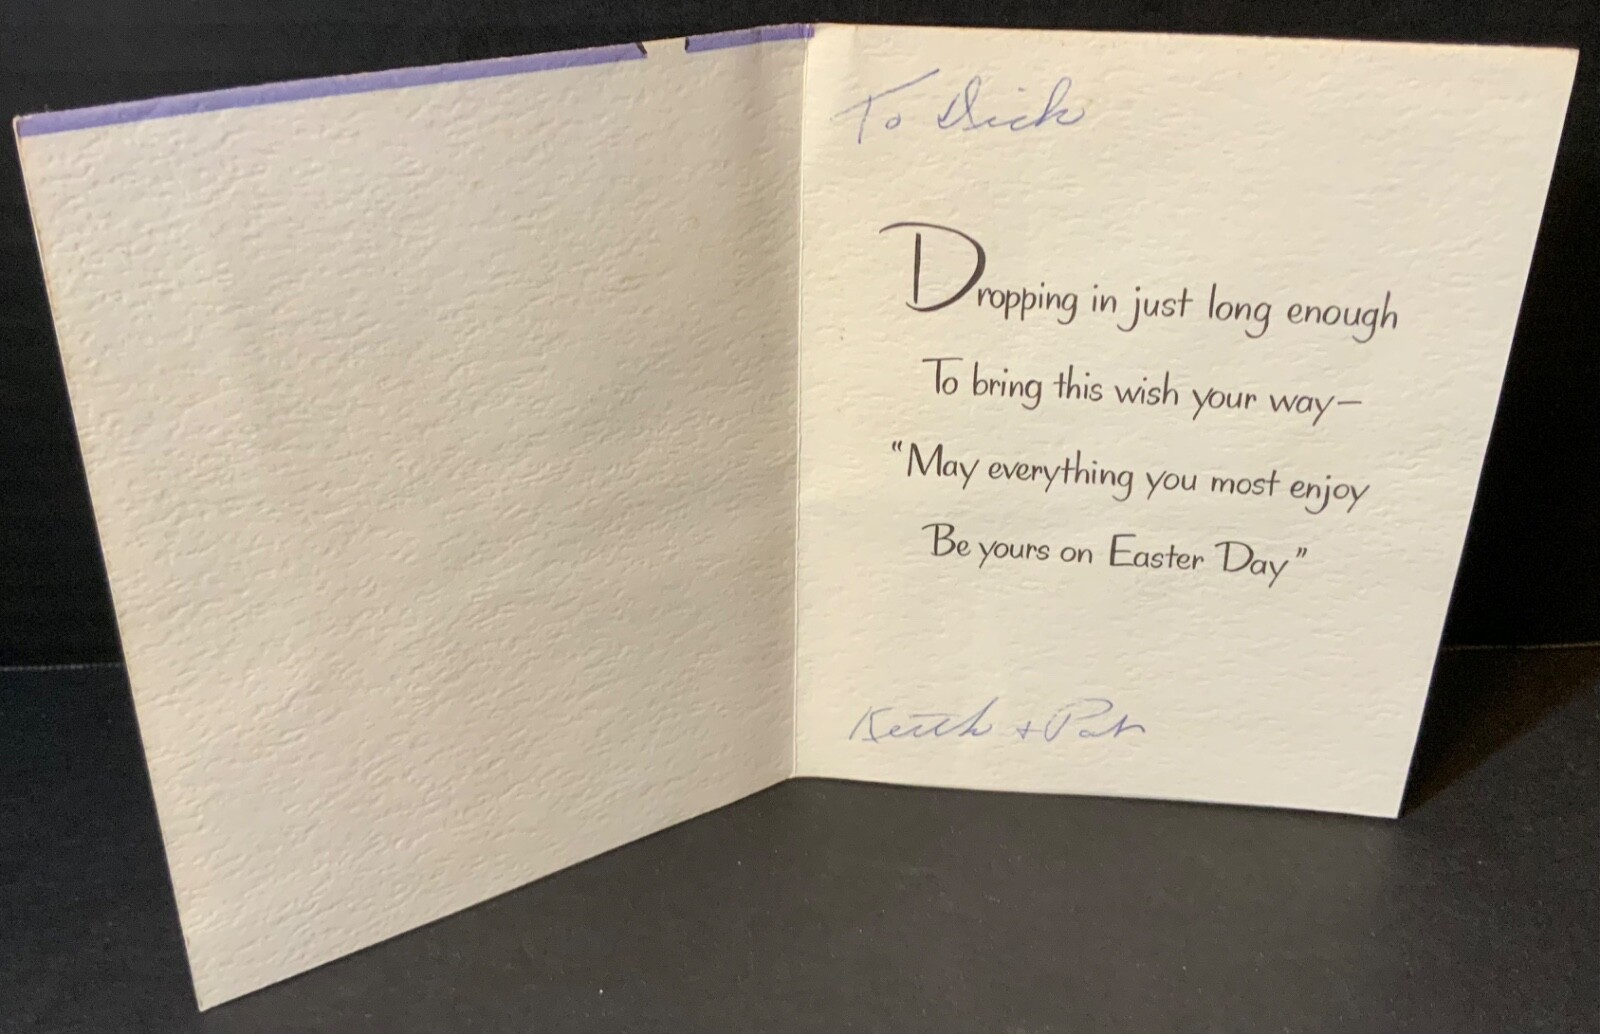 To Dick
Dropping in just long enough
To bring this wish your way—
"May everything you most enjoy
Be yours on Easter Day"
Keith + Pat